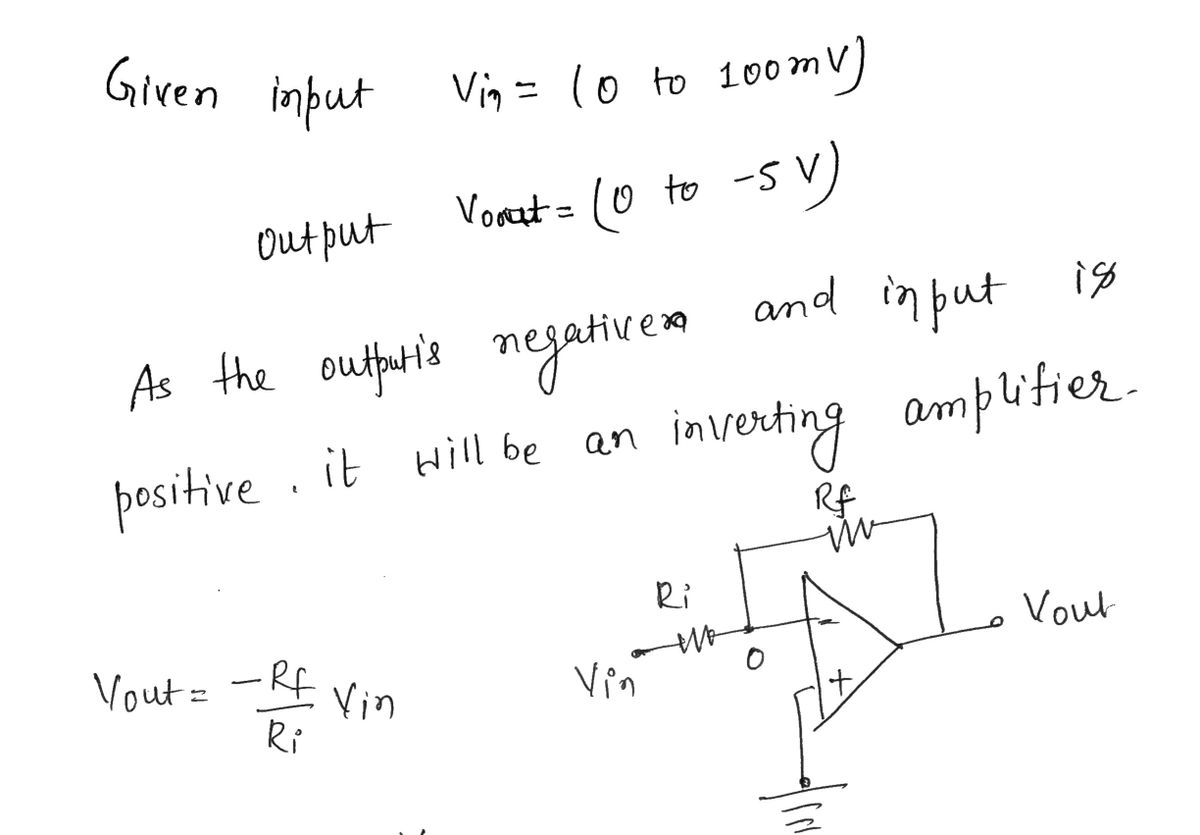 Given input Vin = (0 to 100mV)
output Vout = (0 to -5 V)
As the output is negative and input is
positive. it will be an inverting amplifier.
Rf
Ri
Vout
Vin
0
-
+
Vout = -Rf/Ri Vin